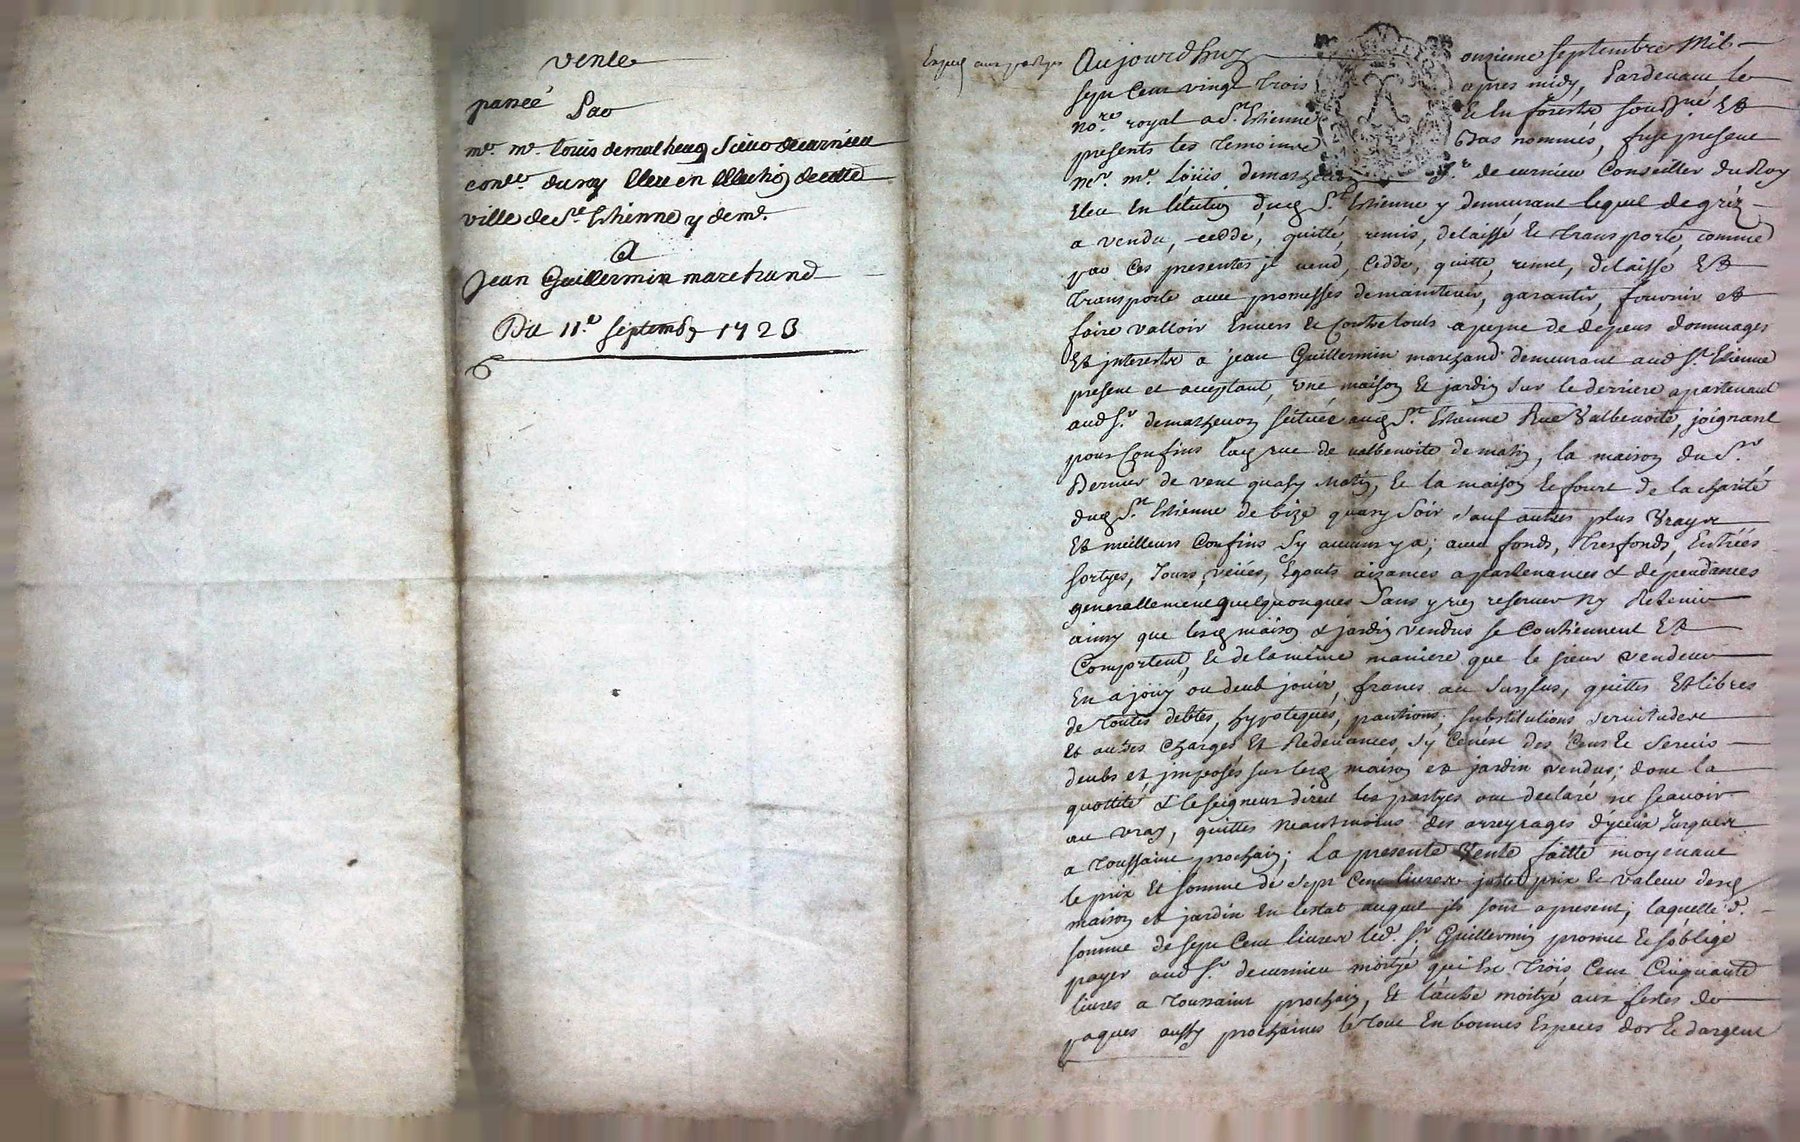 vente
passée
Par
mr. mr. Louis demathenon Sieur decurnieu
coner. du roy Eleu en Election de cette
ville de St. Etienne y demt.
A
Jean Guillermin marchand
Du 11e. Septembre 1723
Expedié aux partyes
Aujourdhuy onzieme septembre Mil
sept Cent vingt Trois apres midy, Pardevant le
nore. royal a St. Etienne En forests soussigné Et
presents les temoins bas nommés, fust present
Mr. me. Loüis demathenon Sr. de curnieu Conseiller du Roy
Eleu En l'élection dud. St. Etienne y demeurant lequel de gré
a vendu, ceddé, quitté, remis, delaissé Et transporté, comme
par Ces presentes il vend, Cedde, quitte, remet, delaisse Et
transporte avec promesses de maintenir, garantir, fournir et
faire valloir Envers Et Contre touts a peyne de depens dommages
Et interests a jean Guillermin marchand demeurant aud. St. Etienne
present et acceptant, une maison Et jardin sur le derriere apartenant
aud Sr. demathenon scituée aud. St. Etienne Rue Valbenoite, joignant
pour Confins lad. rue de valbenoite de matin, la maison du Sr.
Bernier de vent quasy Matin, Et la maison Et fourt de la charité
dud. St. Etienne de bize quasy soir sauf autres plus Vrays
Et meilleurs Confins sy aucuns y a; avec fonds, tresfonds, Entrées
sortyes, Jours, veües, Egouts aizances apartenances & dependances
generallement quelquonques sans y rien reserver Ny Retenir
ainsy que lesd. maison & jardin vendus se Contiennent Et
Comportent, Et de la même maniere que le sieur vendeur
En a joüy ou deub jouir, francs au surplus, quittes Et libres
de toutes debtes, hypoteques, pantions, substitutions servitudes
Et autres Charges Et Redevances, sy Ce n'est des Cens Et Servis
deubs et imposés sur lesd. maison et jardin vendus; dont la
quottité & le seigneur direct les partyes ont declaré ne sçavoir
au vray, quittes neantmoins des arreyrages dyceux jusques
a toussaint prochain; La presente Vente faitte moyenant
le prix Et somme de sept Cent livres juste prix Et valeur desd.
maison et jardin En lestat auquel ils sont apresent; laquelle d.
somme de sept Cent livres led. Sr. Guillermin promet Et soblige
payer aud Sr. de curnieu moitye qui Est trois Cent Cinquante
livres a toussaint prochain, Et l'autre moitye aux festes de
paques aussy prochaines le tout En bonnes Especes dor Et dargent